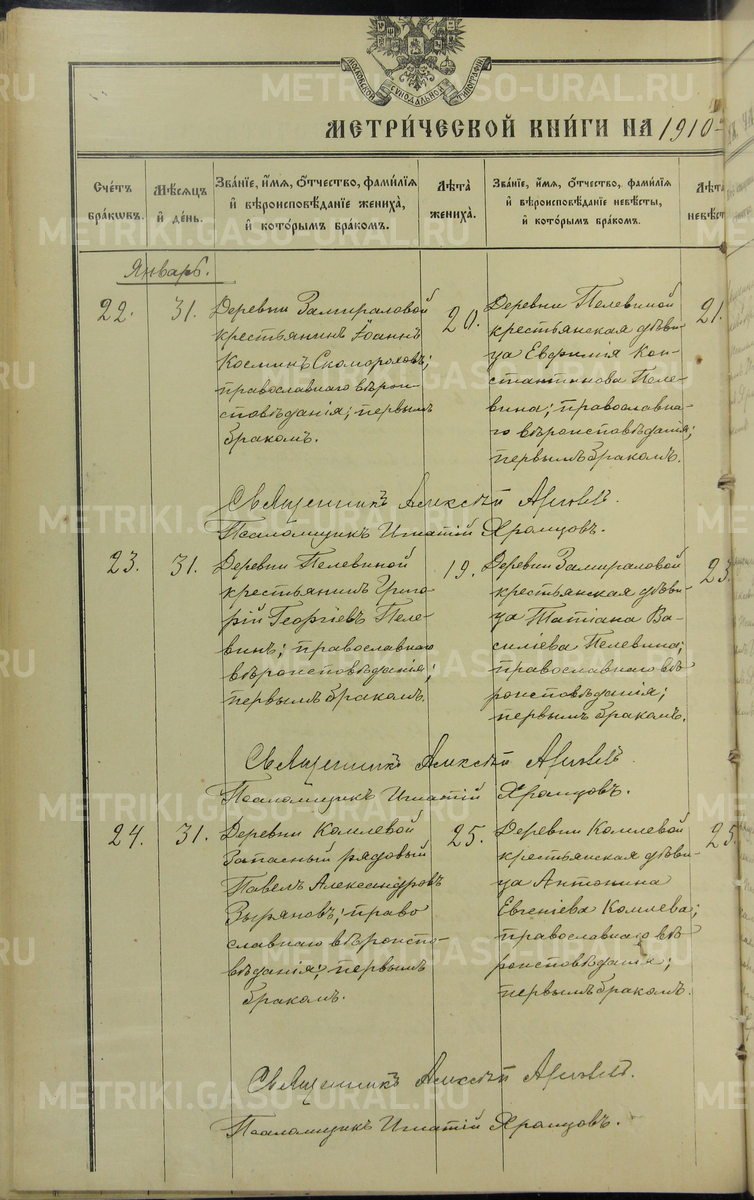 МОСКОВСКОЙ СѴНОДАЛЬНОЙ ТИПОГРАФІИ
МЕТРИ́ЧЕСКОЙ КНИ́ГИ НА 1910
Сче́тъ бра́кѡвъ.
Мѣ́сяцъ и҆ де́нь.
Зва́нїе, и҆́мѧ, ѻ҆́тчество, фами́лїѧ
и҆ вѣроисповѣ́данїе жениха̀,
и҆ кото́рымъ бра́комъ.
Лѣ́та жениха̀.
Зва́нїе, и҆́мѧ, ѻ҆́тчество, фами́лїѧ
и҆ вѣроисповѣ́данїе невѣ́сты,
и҆ кото́рымъ бра́комъ.
Лѣ́та
невѣ́ст
Январь.
22. 31.
Деревни Замираловой
крестьянинъ Іоаннъ
Косминъ Скомороховъ;
православнаго вѣрои-
сповѣданія; первымъ
бракомъ.
20.
Деревни Пелевиной
крестьянская дѣви-
ца Евфимія Кон-
стантинова Пеле-
вина; православна-
го вѣроисповѣданія;
первымъ бракомъ.
21.
Священникъ Алексѣй
Псаломщикъ Игнатій Храмцовъ.
23. 31.
Деревни Пелевиной
крестьянинъ Григо-
рій Георгіевъ Пеле-
винъ; православнаго
вѣроисповѣданія;
первымъ бракомъ.
19.
Деревни Замираловой
крестьянская дѣви-
ца Татіана Ва-
силіева Пелевина;
православнаго вѣ-
роисповѣданія;
первымъ бракомъ.
23.
Священникъ Алексѣй
Псаломщикъ Игнатій Храмцовъ.
24. 31.
Деревни Комлевой
запасный рядовый
Павелъ Александровъ
Зыряновъ; право
славнаго вѣроиспо-
вѣданія; первымъ
бракомъ.
25.
Деревни Комлевой
крестьянская дѣви-
ца Антонина
Евгеніева Комлева;
православнаго вѣ
роисповѣданія;
первымъ бракомъ.
25.
Священникъ Алексѣй
Псаломщикъ Игнатій Храмцовъ.
METRIKI.GASO-URAL.RU